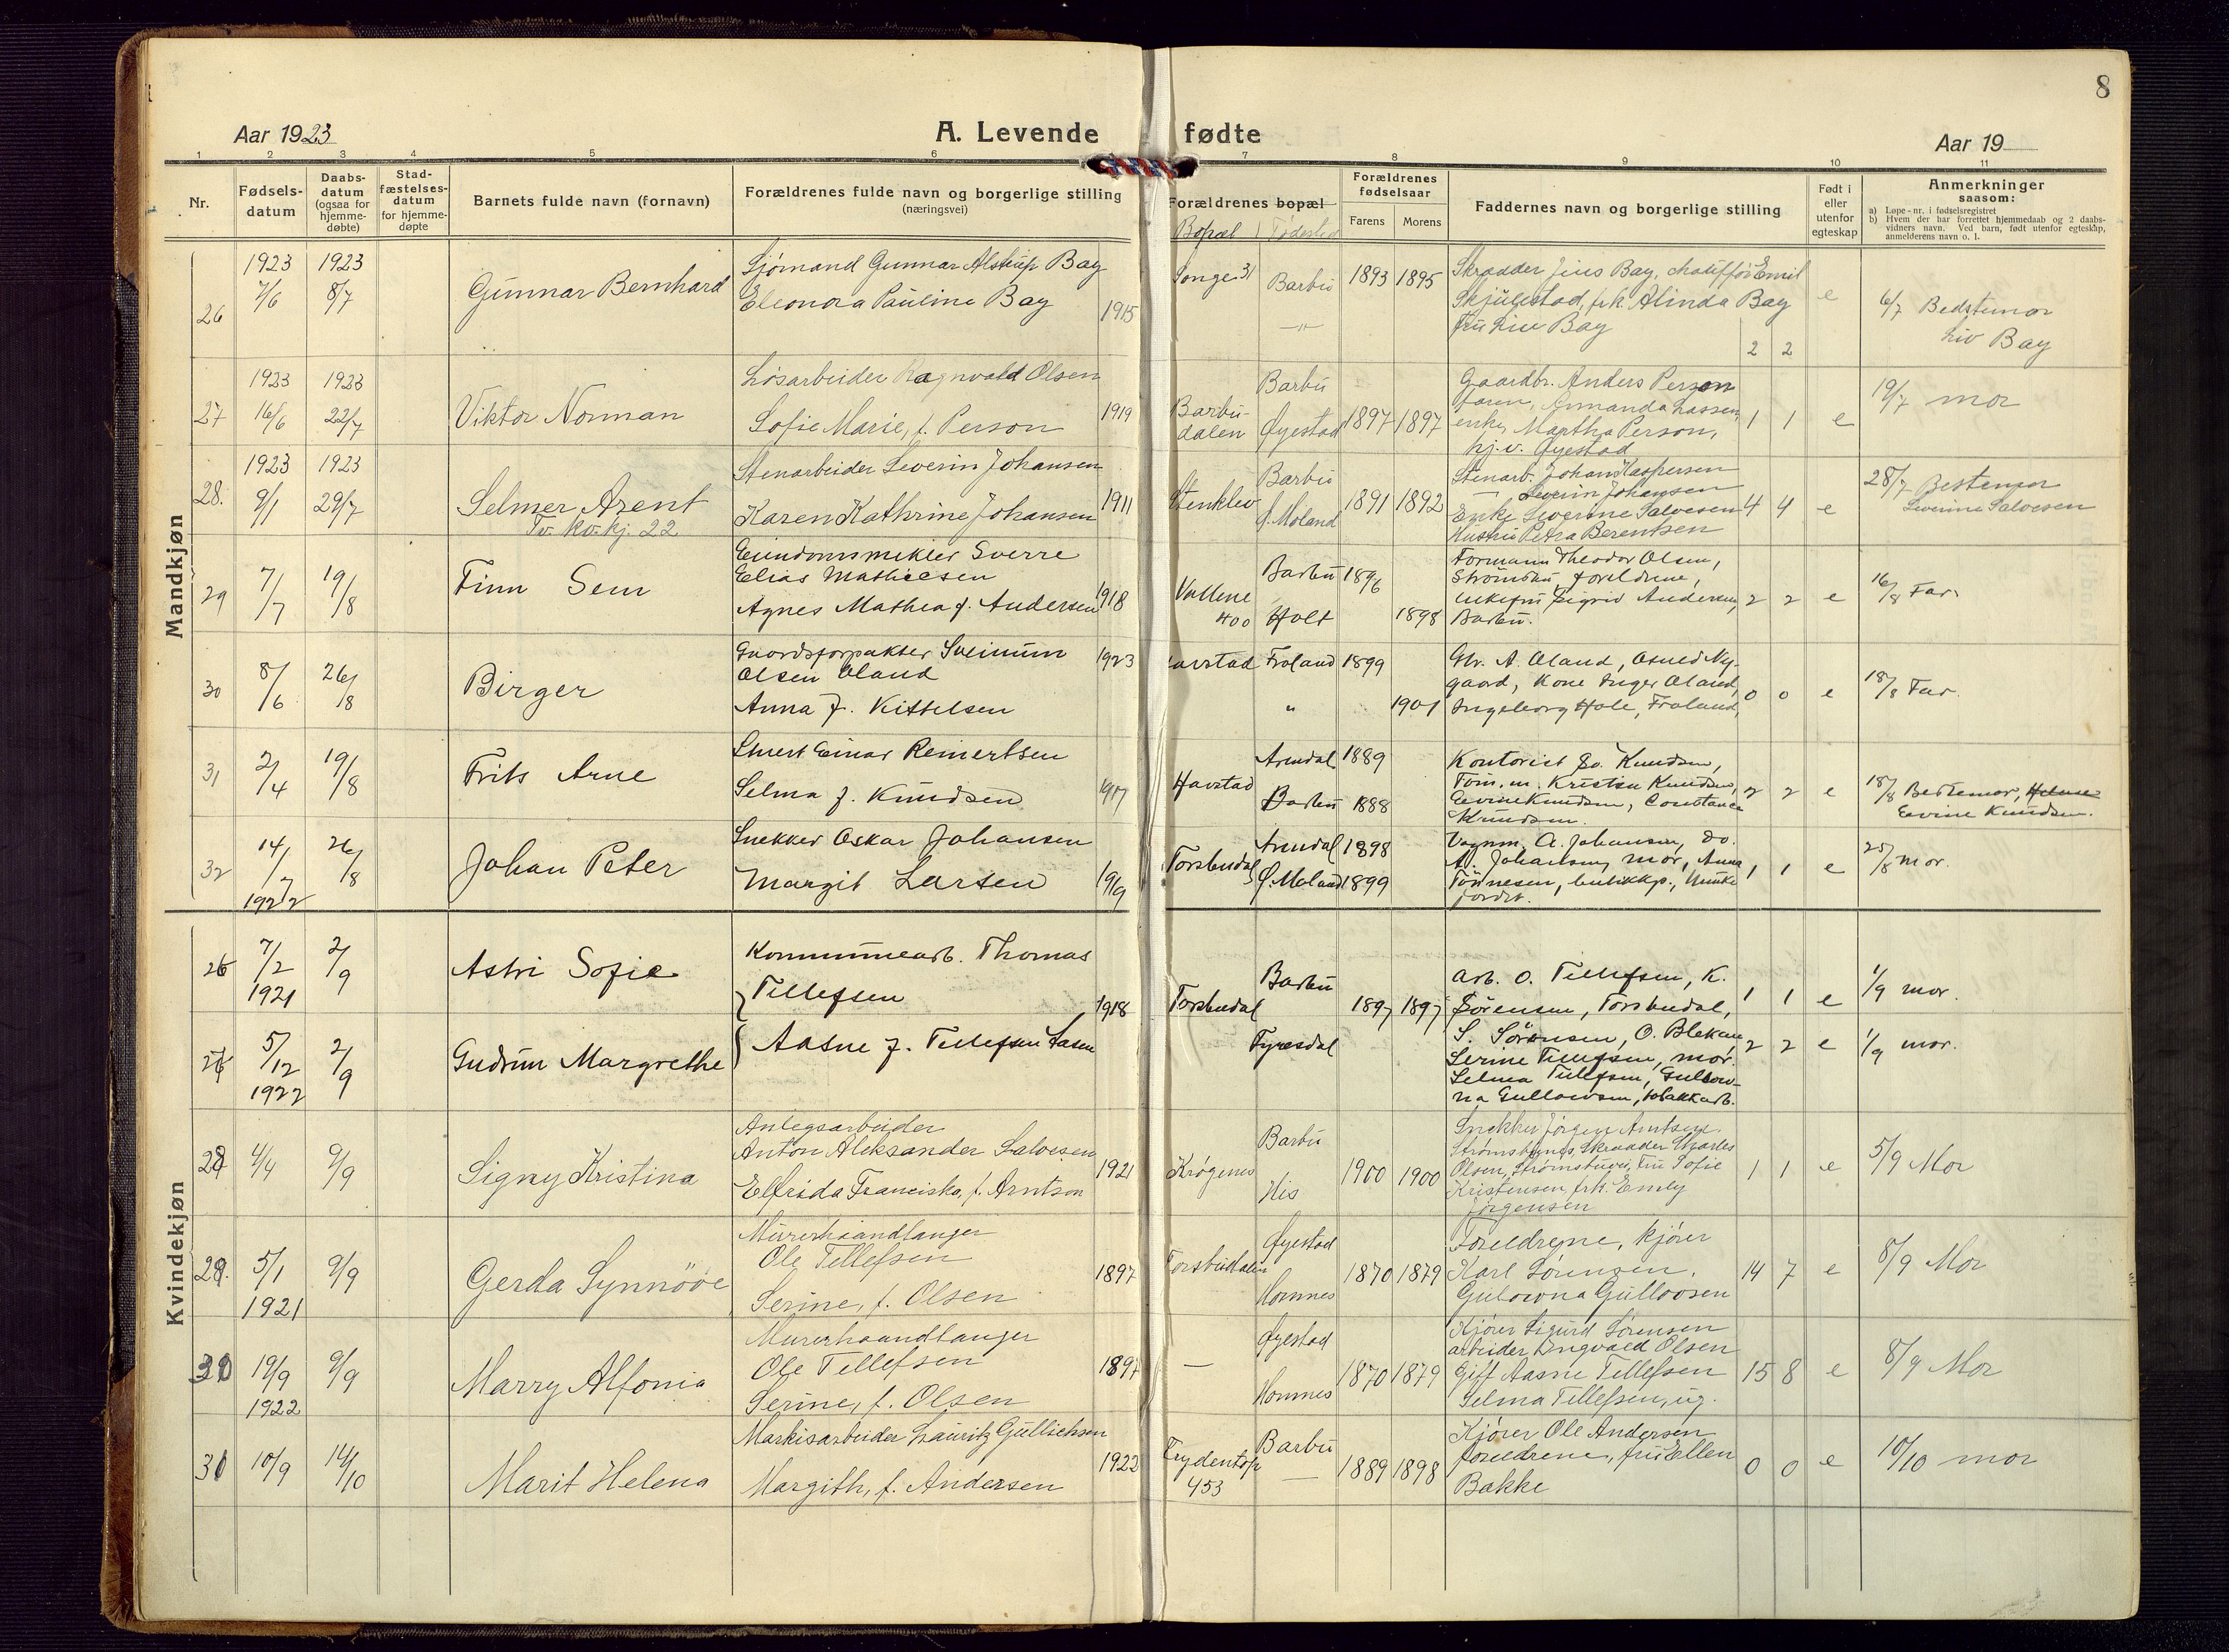 8
Aar 1923
A. Levende fødte
Aar 19
1 2 3 4 5 6 7 8 9 10 11
Nr.
Fødsels-
datum
Daabs-
datum
(ogsaa for
hjemme-
døbte)
Stad-
fæstelses-
datum
for hjemme-
døpte
Barnets fulde navn (fornavn)
Forældrenes fulde navn og borgerlige stilling
(næringsvei)
Forældrenes bopæl
Bopæl Fødested
Forældrenes
fødselsaar
Farens Morens
Faddernes navn og borgerlige stilling
Født i
eller
utenfor
egteskap
Anmerkninger
saasom:
a) Løpe-nr. i fødselsregistret
b) Hvem der har forrettet hjemmedaab og 2 daabs-
vidners navn. Ved barn, født utenfor egteskap,
anmelderens navn o. l.
Mandkjøn
26
1923 1923
7/6 8/7
Gunnar Bernhard
Sjömand Gunnar Alstrup Bay
Eleonora Pauline Bay
1915
Songe 31 Barbu
—"—
1893 1895
Skrædder Jius Bay, chaufför Emil
Skjulestad, frk. Alinda Bay
Fru Liv Bay
2 2
e
6/7 Bedstemor
Liv Bay
27
1923 1923
16/6 22/7
Viktor Norman
Løsarbeider Ragnvald Olsen
Sofie Marie, f. Person
1919
Barbu-
dalen
Barbu
Øyestad
1897 1897
Gaardbr. Anders Person
faren, Amanda Lassen,
enke, Martha Person,
hj. v. Øyestad
1 1 e
19/7 mor
28.
1923 1923
9/1 29/7
Selmer Arent
Tv. kv. kj. 22
Stenarbeider Severin Johansen
Karen Kathrine Johansen
1911
Stenklev
Barbu
Ø. Moland
1891 1892
Stenarb. Johan Kaspersen
— Severin Johansen
Enke Severine Salvesen
Hustru Petra Berentsen
4 4 e
28/7 Bestemor
Severine Salvesen
29
7/7 19/8
Finn Sem
Eiendomsmekler Sverre
Elias Mathiesen
Agnes Mathea f. Andersen
1918
Vollene
400
Barbu
Holt
1896
1898
Formann Theodor Olsen,
Strömsbu, foreldrene,
enkefru Sigrid Andersen,
Barbu.
2 2 e
16/8 Far.
30
8/6 26/8
Birger
Gaardsforpakter Sveinum
Olsen Oland
Anna f. Kittelsen
1923
Froland
"
1899
1901
Gbr. A. Oland, Osuld Ny-
gaard, Kone Inger Oland,
Ingeborg Hole, Froland,
0 0 e
18/8 Far.
31
2/4 19/8
Frits Arne
Einar Reinertsen
Selma f. Knudsen
1917
Havstad
Arendal
Barbu
1889
1888
Kontorist Knudsen,
Kristen Knudsen,
Knudsen, Constance
Knudsen.
2 2 e
18/8 Bestemor,
Knudsen.
32
14/7 26/8
1922
Johan Peter
Snekker Oskar Johansen
Margit Larsen
1919
Torsbudal
Arendal
Ø. Moland
1898
1899
Vognm. A. Johansen, do.
A. Johansen, mor, Anna
Tönnesen, butikkp., Munke
jordet.
1 1 e
25/8 mor.
Kvindekjøn
26
7/2 2/9
1921
Astri Sofie
Kommunearb. Thomas
Tellefsen
1918
Torsbudal
Barbu
1897 1897
Arb. O. Tellefsen, K.
Sörensen, Torsbudal,
1 1 e
1/9 mor.
27
5/12 2/9
1922
Gudrun Margrethe
Aasne f. Tellefsen
Fyresdal
S. Sörensen, O. Blekan
Serine Tellefsen, mor.
Selma Tellefsen, Gullow-
na Gullowsen, tobakkarb.
2 2 e
1/9 mor.
28
4/4 9/9
Signy Kristina
Anlegsarbeider
Anton Aleksander Salvesen
Elfrida Franciska, f. Arntsen
1921
Krögenes
Barbu
His
1900 1900
Snekker Jörgen Arntsen,
Strømsbunes, Skrædder Charles
Olsen, Strømsbunes, Fru Sofie
Kristensen, frk. Emely
Jörgensen
1 1 e
5/9 Mor
29.
5/1 9/9
1921
Gerda Synnöve
Murerhaandlanger
Ole Tellefsen
Serine, f. Olsen
1897
Torsbudalen
Øyestad
Hornnes
1870 1879
Foreldrene, kjörer
Karl Sörensen,
Gulowna Gullovsen
14 7 e
8/9 Mor
30
19/9 9/9
1922
Marry Alfonia
Murerhaandlanger
Ole Tellefsen
Serine, f. Olsen
1897
—
Øyestad
Hornnes
1870 1879
Kjörer Sigurd Sörensen
arbeider Ingvald Olsen
Gift Aasne Tellefsen
Selma Tellefsen, ug.
15 8 e
8/9 Mor
31
10/9 14/10
Marit Helena
Markisarbeider Lauritz Gullichsen
Margith, f. Andersen
1922
Frydentop
453
Barbu
—
1889 1898
Kjörer Ole Andersen
foreldrene, fru Ellen
Bakke
0 0 e
10/10 mor